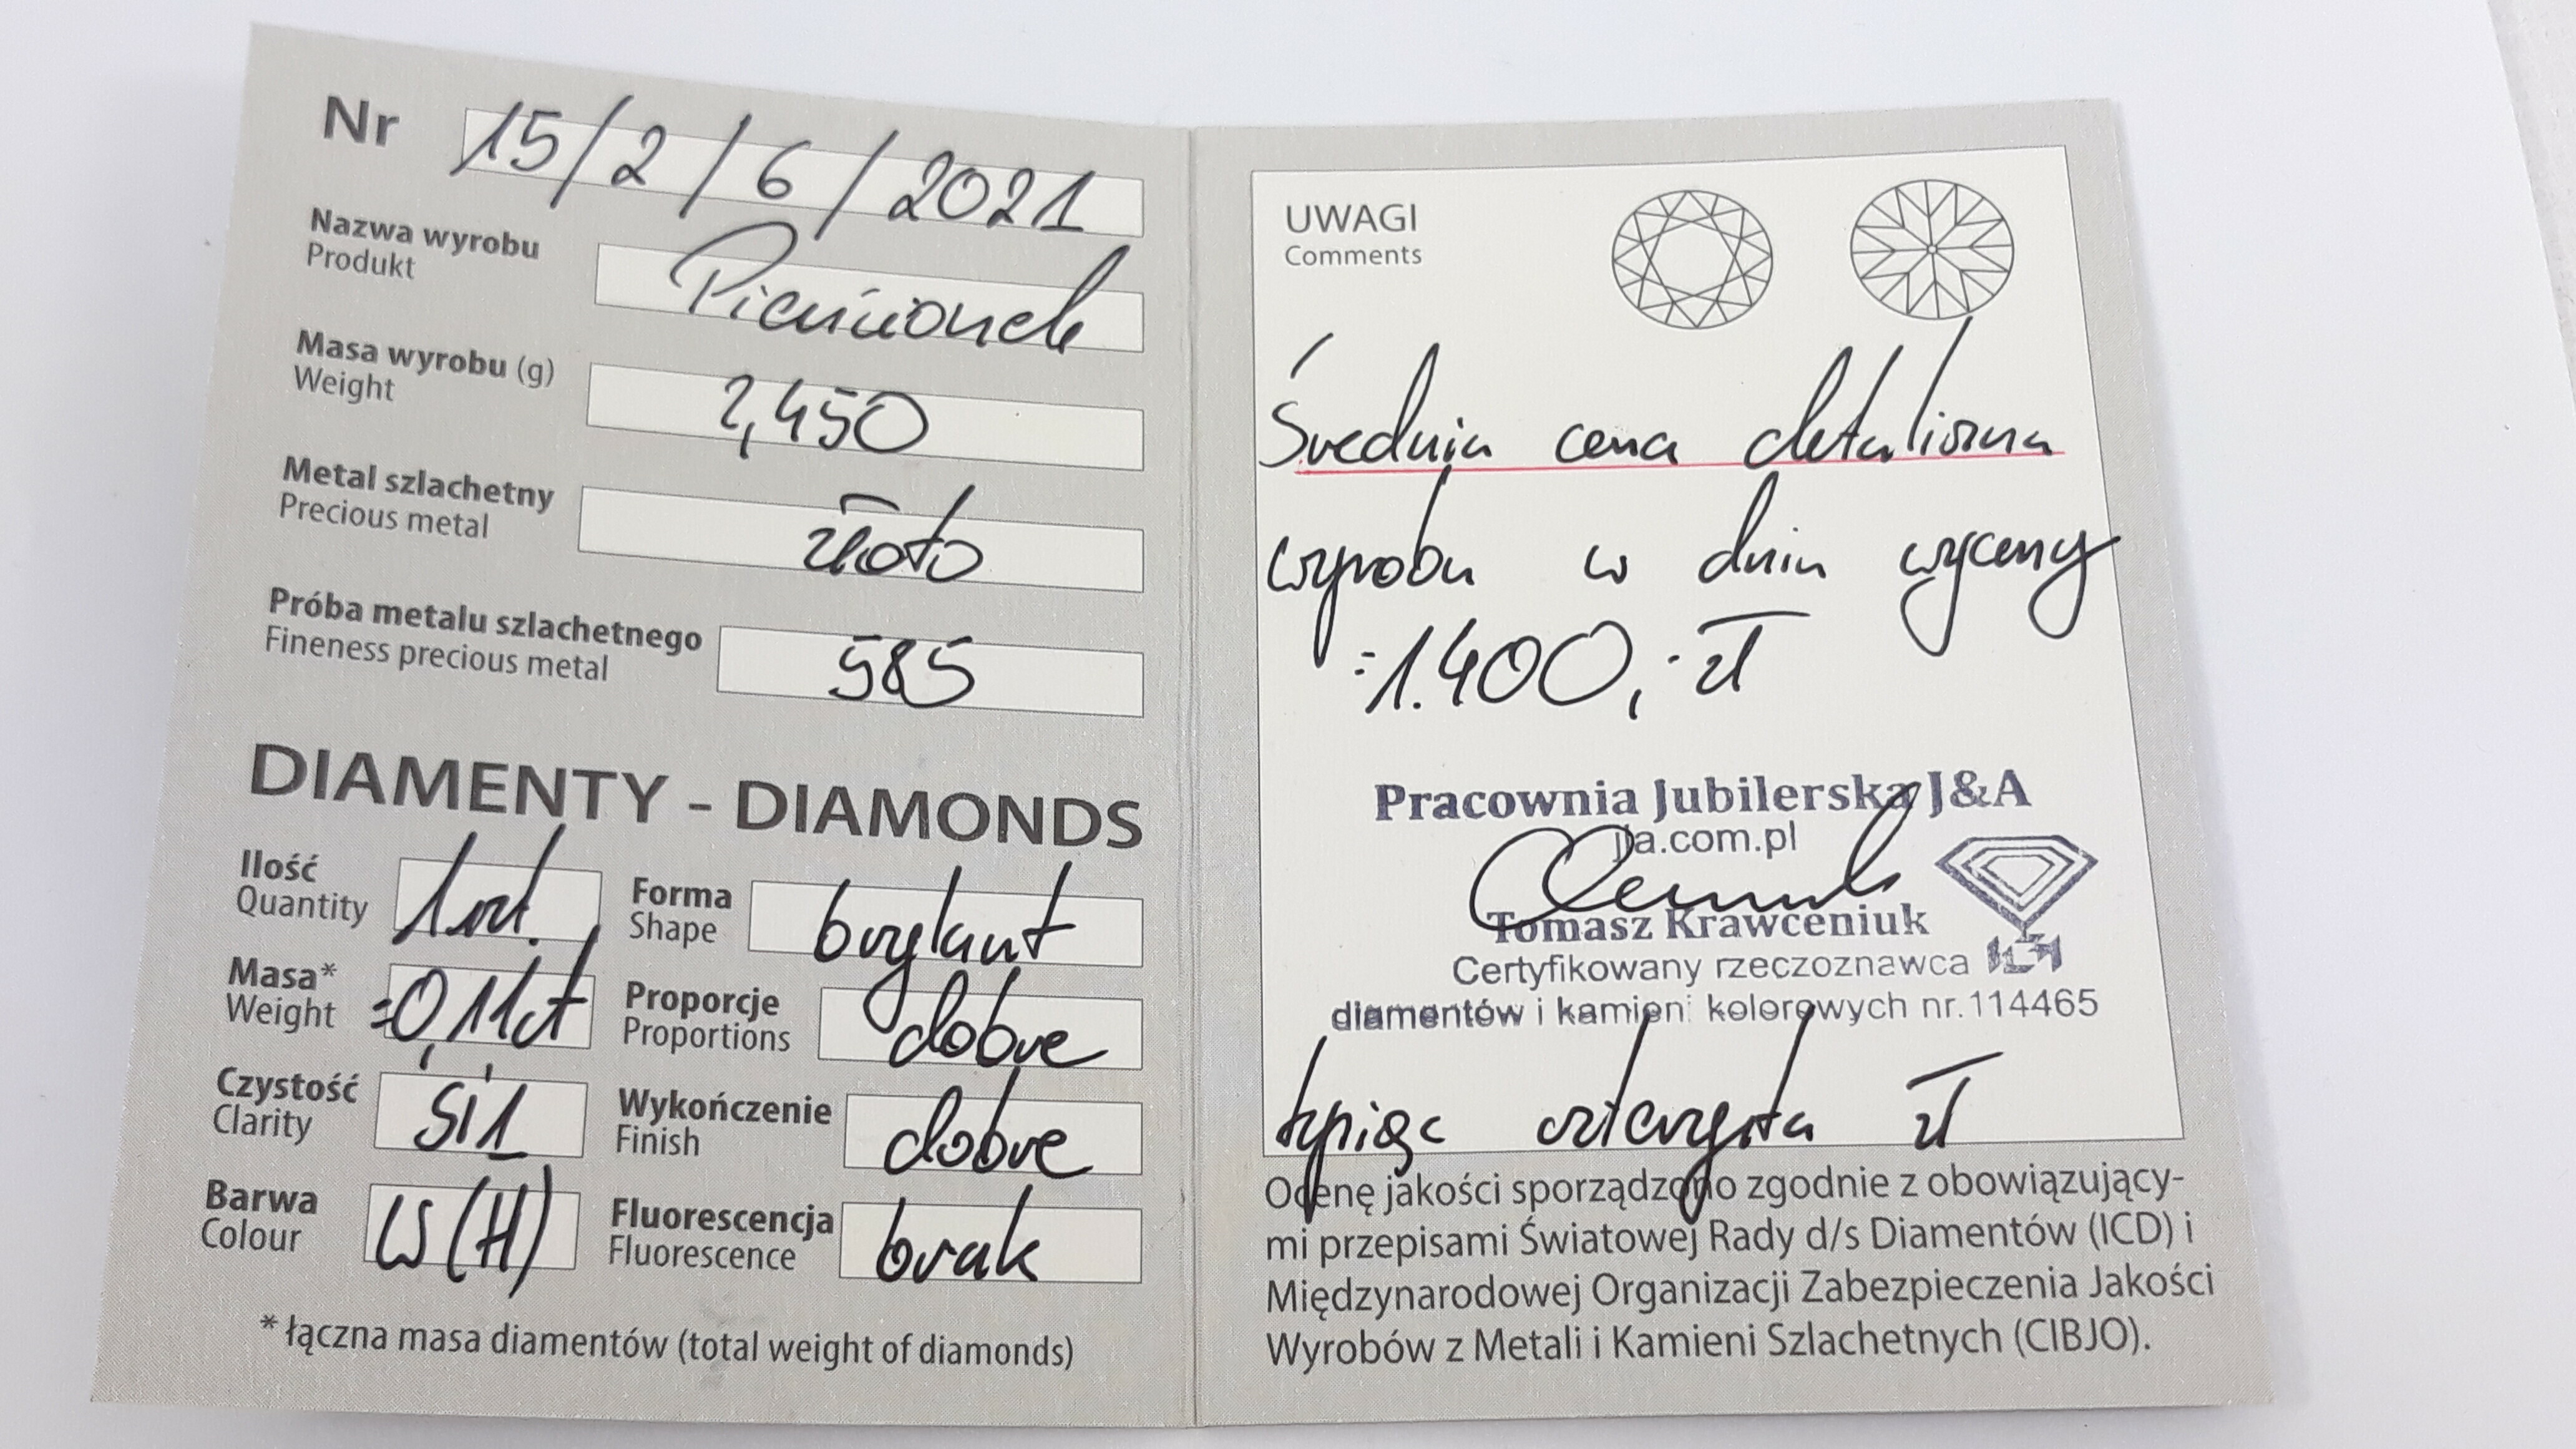 Nr 15/2/6/2021
Nazwa wyrobu Pierścionek
Produkt
Masa wyrobu (g) 2,450
Weight
Metal szlachetny złoto
Precious metal
Próba metalu szlachetnego 585
Fineness precious metal
DIAMENTY - DIAMONDS
Ilość 1 szt.
Quantity
Forma brylant
Shape
Masa* =0,11ct
Weight
Proporcje dobre
Proportions
Czystość Si1
Clarity
Wykończenie dobre
Finish
Barwa W(H)
Colour
Fluorescencja brak
Fluorescence
* łączna masa diamentów (total weight of diamonds)
UWAGI
Comments
Średnia cena detaliczna
wyrobu w dniu wyceny
:1.400,- zł
Pracownia Jubilerska J&A
jia.com.pl
Tomasz Krawceniuk
Certyfikowany rzeczoznawca
diamentów i kamieni kolorowych nr.114465
tysiąc czterysta zł
Ocenę jakości sporządzono zgodnie z obowiązujący-
mi przepisami Światowej Rady d/s Diamentów (ICD) i
Międzynarodowej Organizacji Zabezpieczenia Jakości
Wyrobów z Metali i Kamieni Szlachetnych (CIBJO).